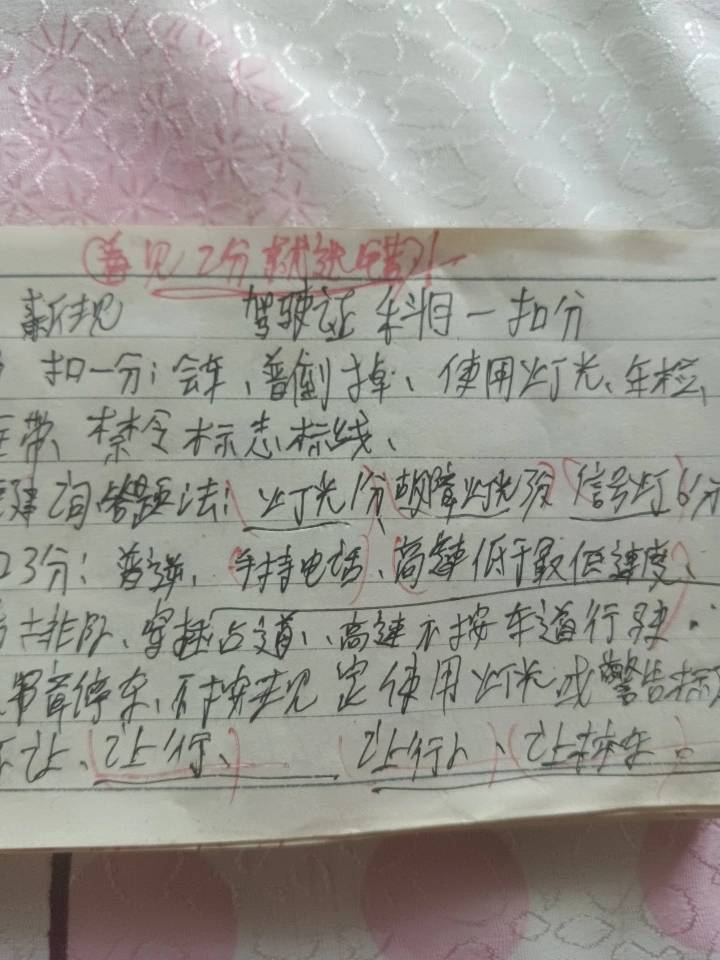 看见2分就选错!
新规 驾驶证科目一扣分
扣一分:会车、普倒掉、使用灯光、年检、
带、禁令标志标线、
间答题法:(灯光1分)(故障灯光3分)(信号灯6分
3分:普逆、(手持电话)、(高速低于最低速度)、
排队、穿插占道、高速不按车道行驶.
障停车、不按规定使用灯光或警告标
让、(让行、) (让行人)、(让校车。